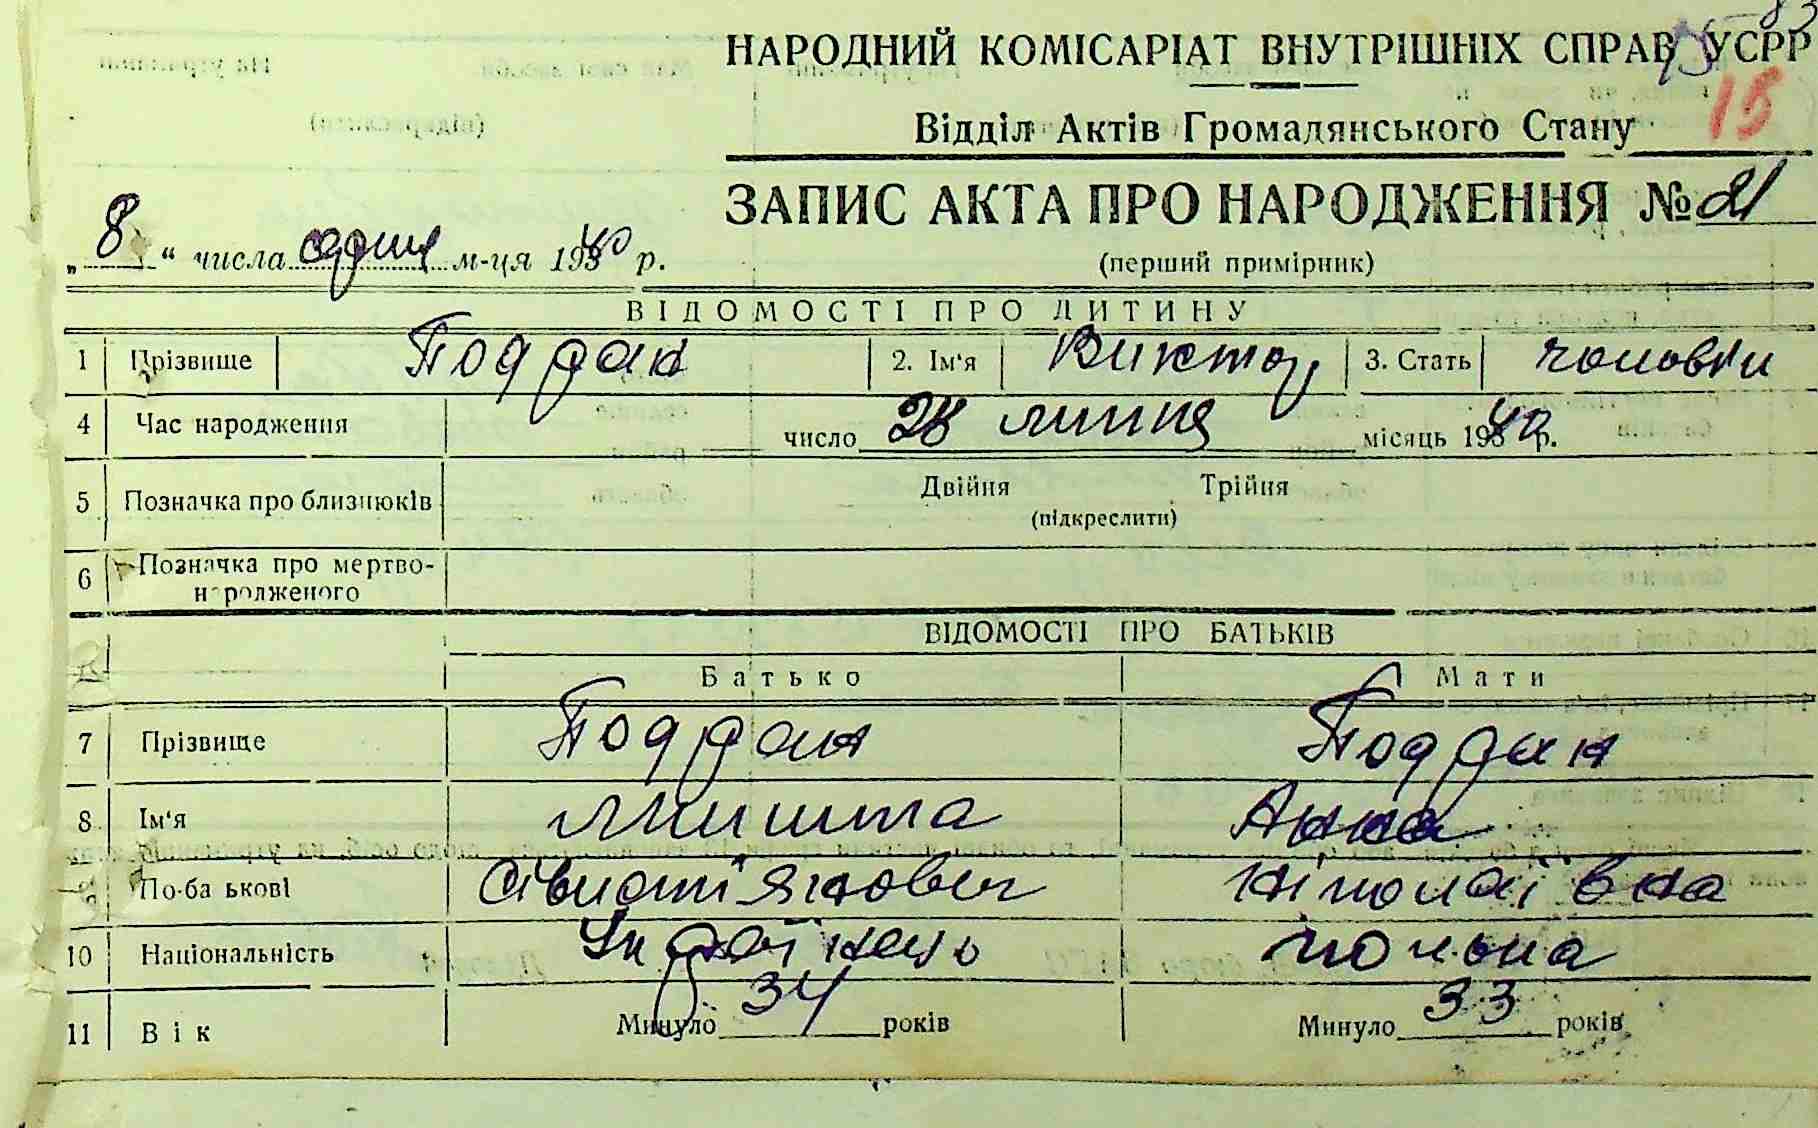 83
НАРОДНИЙ КОМІСАРІАТ ВНУТРІШНІХ СПРАВ УСРР
15
Відділ Актів Громадянського Стану
ЗАПИС АКТА ПРО НАРОДЖЕННЯ № 21
(перший примірник)
„8“ числа серпня м-ця 1940 р.
ВІДОМОСТІ ПРО ДИТИНУ
1 Прізвище Поддан 2. Ім‘я Виктор 3. Стать чоловіч
4 Час народження число 28 липня місяць 1940 р.
5 Позначка про близнюків Двійня Трійня
(підкреслити)
6 Позначка про мертво-
народженого
ВІДОМОСТІ ПРО БАТЬКІВ
Батько Мати
7 Прізвище Поддан Поддан
8 Ім‘я Микита Анна
9 По-ба ькові Ніколаївна
10 Національність Українець полька
11 Вік Минуло 34 років Минуло 33 років